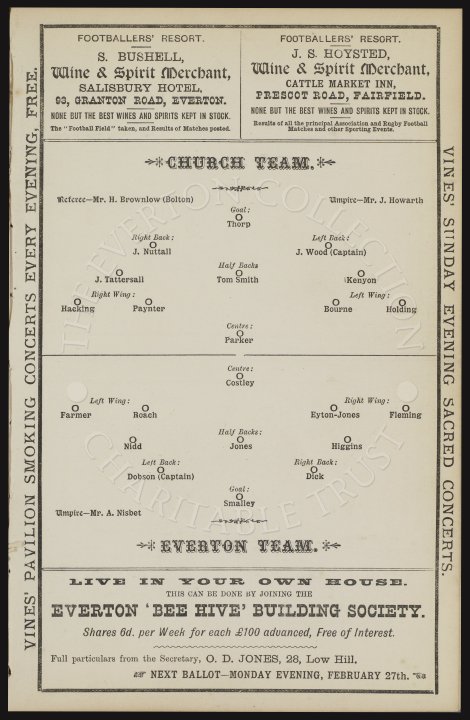 FOOTBALLERS' RESORT.
S. BUSHELL,
Wine & Spirit Merchant,
SALISBURY HOTEL,
93, GRANTON ROAD, EVERTON.
NONE BUT THE BEST WINES AND SPIRITS KEPT IN STOCK.
The "Football Field" taken, and Results of Matches posted.
FOOTBALLERS' RESORT.
J. S. HOYSTED,
Wine & Spirit Merchant,
CATTLE MARKET INN,
PRESCOT ROAD, FAIRFIELD.
NONE BUT THE BEST WINES AND SPIRITS KEPT IN STOCK.
Results of all the principal Association and Rugby Football
Matches and other Sporting Events.
VINES' PAVILION SMOKING CONCERTS EVERY EVENING, FREE.
VINES' SUNDAY EVENING SACRED CONCERTS.
CHURCH TEAM.
Referee—Mr. H. Brownlow (Bolton) Umpire—Mr. J. Howarth
Goal:
Thorp
Right Back: Left Back:
J. Nuttall J. Wood (Captain)
Half Backs
J. Tattersall Tom Smith Kenyon
Right Wing: Left Wing:
Hacking Paynter Bourne Holding
Centre:
Parker
Centre:
Costley
Left Wing: Right Wing:
Farmer Roach Eyton-Jones Fleming
Half Backs:
Nidd Jones Higgins
Left Back: Right Back:
Dobson (Captain) Dick
Goal:
Smalley
Umpire—Mr. A. Nisbet
EVERTON TEAM.
LIVE IN YOUR OWN HOUSE.
THIS CAN BE DONE BY JOINING THE
EVERTON 'BEE HIVE' BUILDING SOCIETY.
Shares 6d. per Week for each £100 advanced, Free of Interest.
Full particulars from the Secretary, O. D. JONES, 28, Low Hill.
NEXT BALLOT—MONDAY EVENING, FEBRUARY 27th.
THE EVERTON COLLECTION
CHARITABLE TRUST